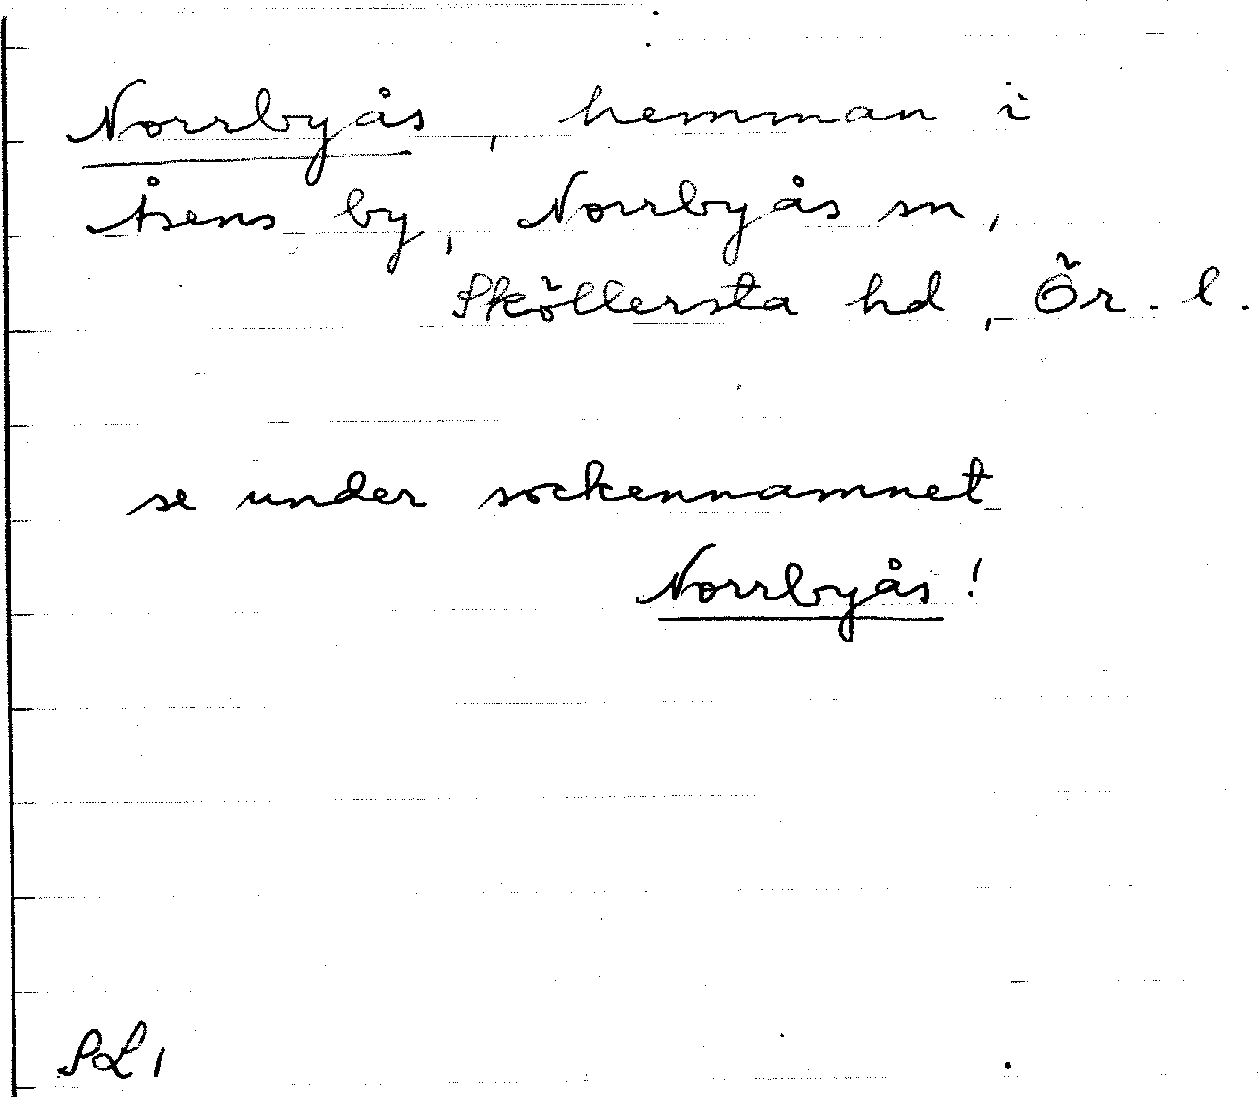 Norrbyås, hemman i
Åsens by, Norrbyås sn,
Sköllersta hd, Ör. l.
se under sockennamnet
Norrbyås!